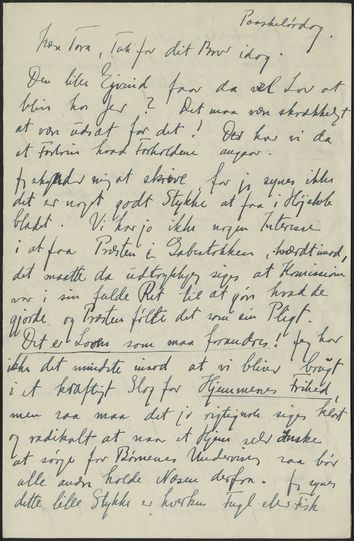 Paaskelørdag.
Kære Tora, Tak for dit Brev idag.
Den lille Ejvind faar da vel Lov at
blive hos Jer? Det maa være skrækkeligt
at være udsat for det! Der har vi da
et Fortrin hvad Forholdene angaar.
Jeg skynder mig at skrive, for jeg synes ikke
det er noget godt Stykke at faa i Højskole
bladet. Vi har jo ikke nogen Interesse
i at faa Præsten i Gabestokken, tværtimod,
det maatte da udtrykkelig siges at Kommissionen
var i sin fulde Ret til at gøre hvad de
gjorde og Præsten følte det som sin Pligt.
Det er Loven som maa forandres! Jeg har
ikke det mindste imod at vi bliver brugt
i et kraftigt Slag for Hjemmenes Frihed,
men saa maa det jo rigtignok siges klart
og radikalt at naar et Hjem selv ønsker
at sørge for Børnenes Undervisn. saa bør
alle andre holde Næsen derfra. Jeg synes
dette lille Stykke er hverken Fugl eller Fisk